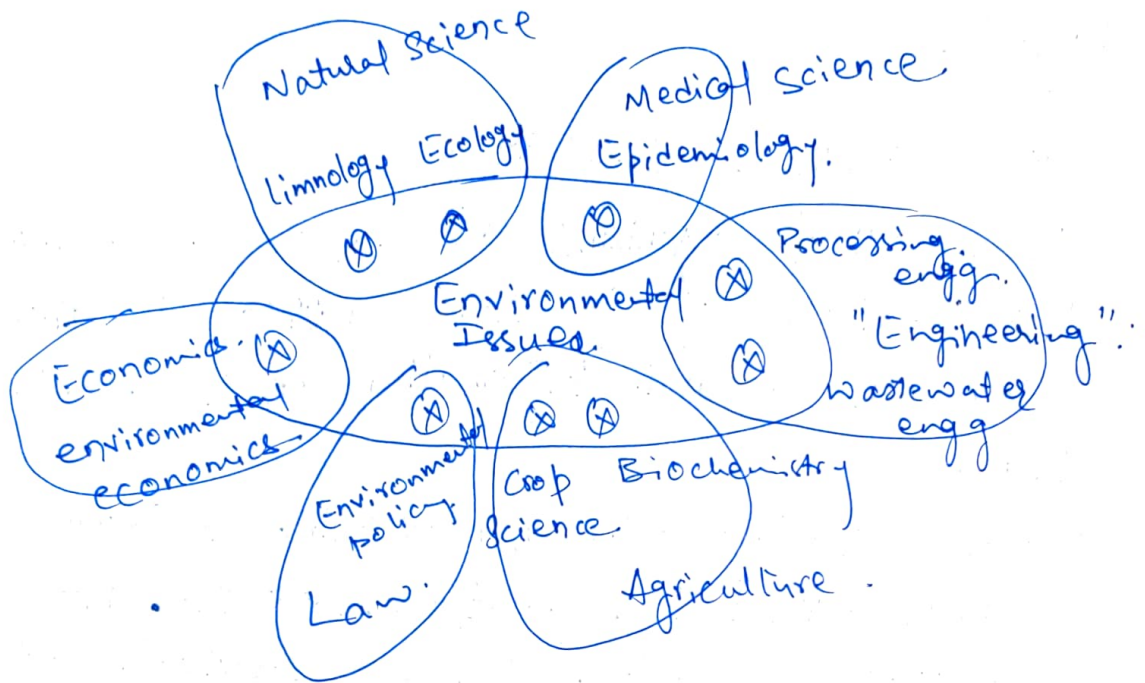 Natural Science
Limnology Ecology
Medical Science
Epidemiology.
Processing
engg.
"Engineering".
wastewater
engg
Environmental
Issues.
Economics.
environmental
economics
Environmental
policy
Law.
Crop
Science
Biochemistry
Agriculture.